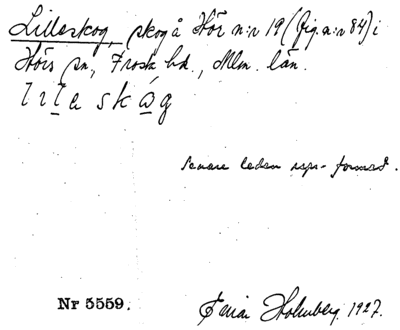 Lilleskog, skog å Hör n:r 19 (fig. a:r 84) i
Hörs sn, Frosta hd., Mlm. län.
lılle skåg
Senare leden
Nr 5559.
Holmberg. 1927.